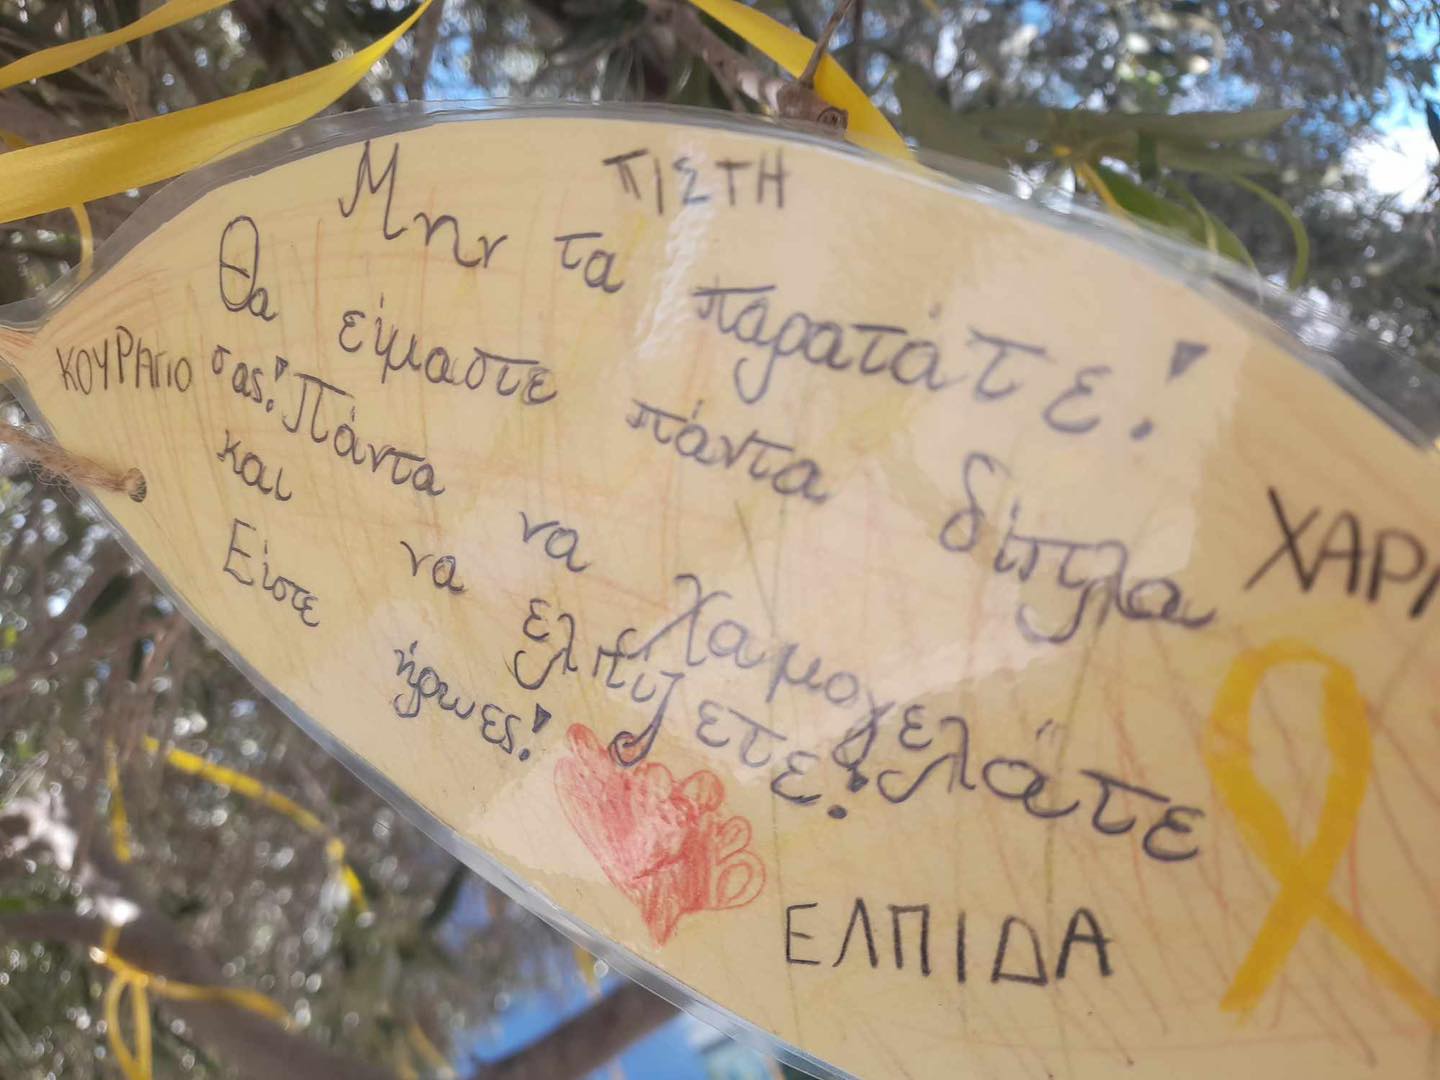 ΠΙΣΤΗ
Μην τα παρατάτε!
Θα είμαστε πάντα δίπλα
σας! Πάντα να χαμογελάτε
και να ελπίζετε!
Είστε ήρωες!
ΚΟΥΡΑΓΙΟ
ΧΑΡ
ΕΛΠΙΔΑ